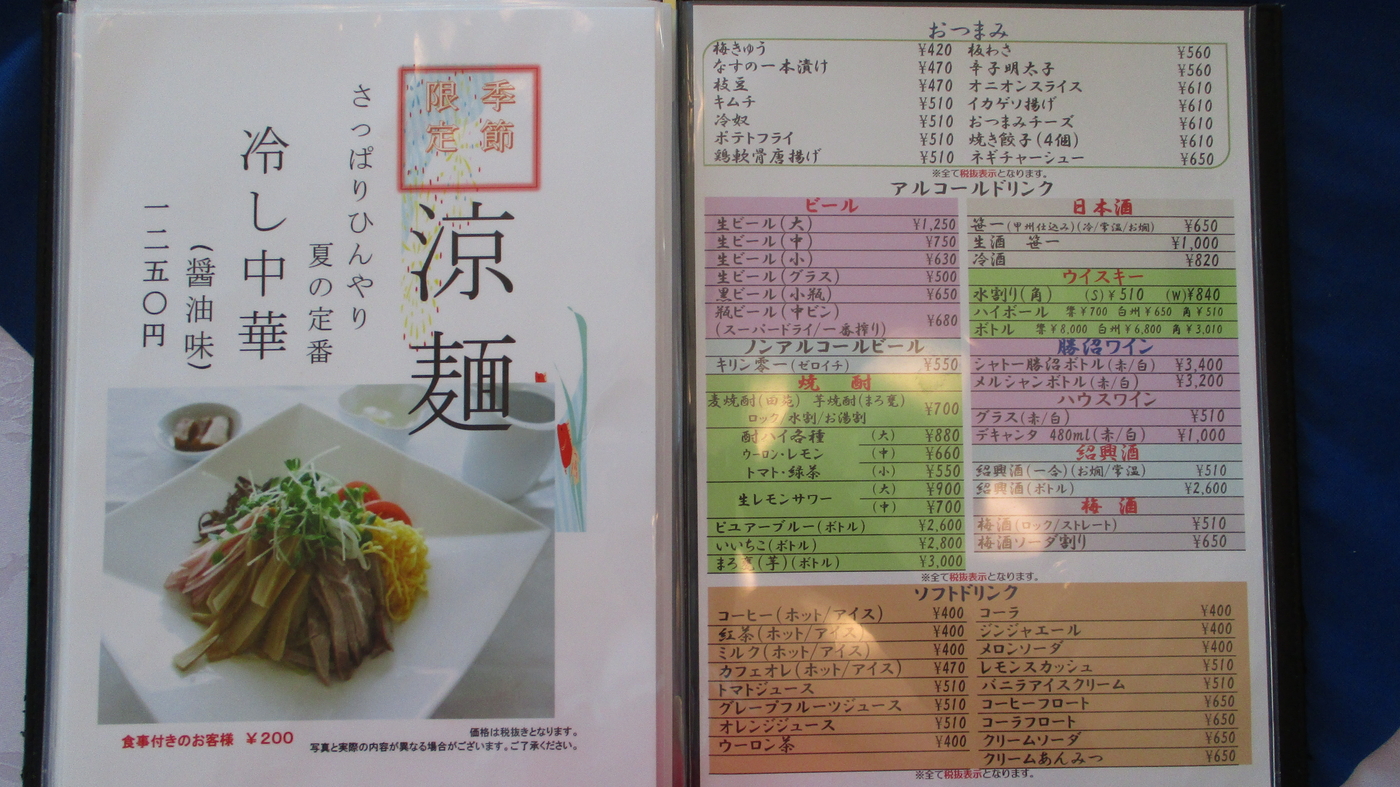 季節
限定
涼麺
さっぱりひんやり
夏の定番
冷し中華
(醤油味)
一二五〇円
食事付きのお客様 ¥200
価格は税抜きとなります。
写真と実際の内容が異なる場合がございます。ご了承ください。
おつまみ
梅きゅう ¥420 板わさ ¥560
なすの一本漬け ¥470 辛子明太子 ¥560
枝豆 ¥470 オニオンスライス ¥610
キムチ ¥510 イカゲソ揚げ ¥610
冷奴 ¥510 おつまみチーズ ¥610
ポテトフライ ¥510 焼き餃子(4個) ¥610
鶏軟骨唐揚げ ¥510 ネギチャーシュー ¥650
※全て税抜表示となります。
アルコールドリンク
ビール
生ビール(大) ¥1,250
生ビール(中) ¥750
生ビール(小) ¥630
生ビール(グラス) ¥500
黒ビール(小瓶) ¥650
瓶ビール(中ビン) ¥680
(スーパードライ/一番搾り)
ノンアルコールビール
キリン零一(ゼロイチ) ¥550
焼 酎
麦焼酎(田苑) 芋焼酎(まろ甕) ¥700
ロック/水割/お湯割
酎ハイ各種 (大) ¥880
ウーロン・レモン (中) ¥660
トマト・緑茶 (小) ¥550
生レモンサワー (大) ¥900
(中) ¥700
ピュアーブルー(ボトル) ¥2,600
いいちこ(ボトル) ¥2,800
まろ甕(芋)(ボトル) ¥3,000
日本酒
笹一(甲州仕込み)(冷/常温/お燗) ¥650
生酒 笹一 ¥1,000
冷酒 ¥820
ウイスキー
水割り(角) (S)¥510 (W)¥840
ハイボール 響¥700 白州¥650 角¥510
ボトル 響¥8,000 白州¥6,800 角¥3,010
勝沼ワイン
シャトー勝沼ボトル(赤/白) ¥3,400
メルシャンボトル(赤/白) ¥3,200
ハウスワイン
グラス(赤/白) ¥510
デキャンタ 480ml(赤/白) ¥1,000
紹興酒
紹興酒(一合)(お燗/常温) ¥510
紹興酒(ボトル) ¥2,600
梅 酒
梅酒(ロック/ストレート) ¥510
梅酒ソーダ割り ¥650
※全て税抜表示となります。
ソフトドリンク
コーヒー(ホット/アイス) ¥400 コーラ ¥400
紅茶(ホット/アイス) ¥400 ジンジャエール ¥400
ミルク(ホット/アイス) ¥400 メロンソーダ ¥400
カフェオレ(ホット/アイス) ¥470 レモンスカッシュ ¥510
トマトジュース ¥510 バニラアイスクリーム ¥510
グレープフルーツジュース ¥510 コーヒーフロート ¥650
オレンジジュース ¥510 コーラフロート ¥650
ウーロン茶 ¥400 クリームソーダ ¥650
クリームあんみつ ¥650
※全て税抜表示となります。